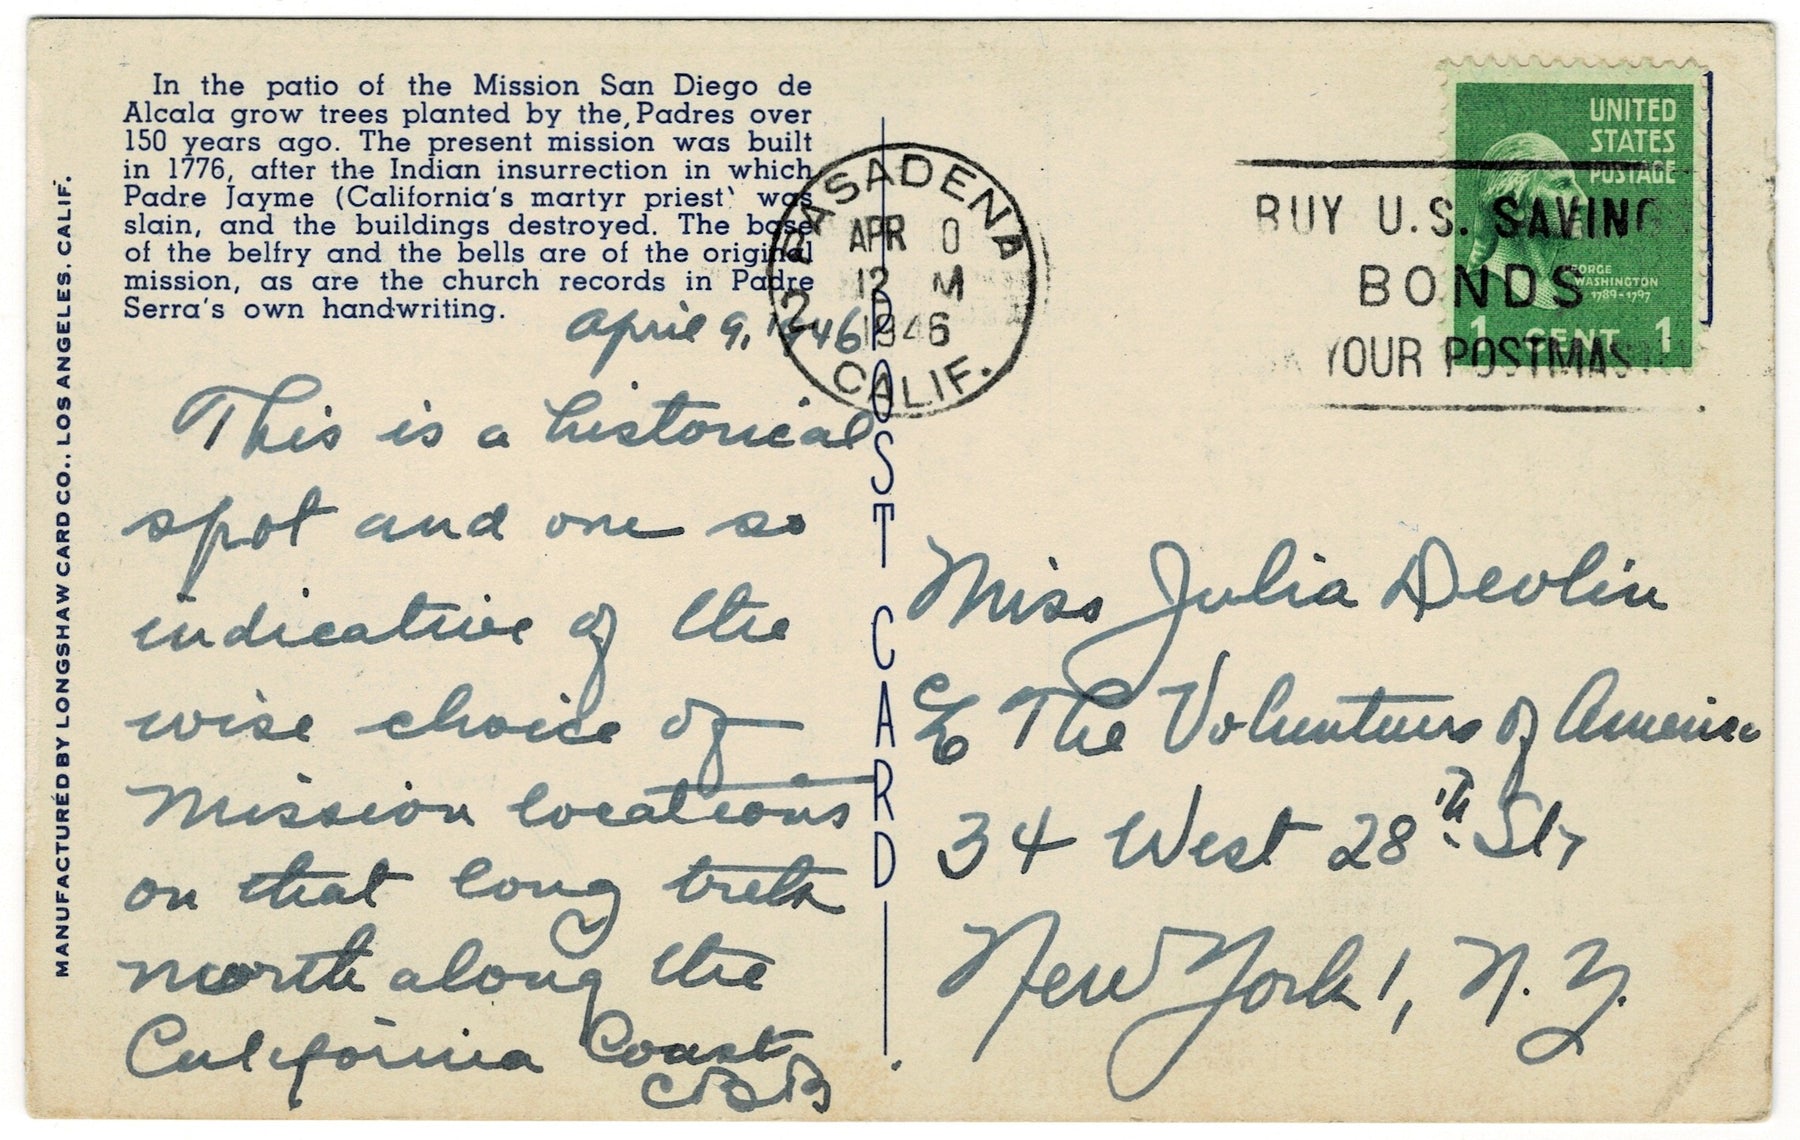 In the patio of the Mission San Diego de
Alcala grow trees planted by the Padres over
150 years ago. The present mission was built
in 1776, after the Indian insurrection in which
Padre Jayme (California's martyr priest' was
slain, and the buildings destroyed. The base
of the belfry and the bells are of the original
mission, as are the church records in Padre
Serra's own handwriting.
MANUFACTURED BY LONGSHAW CARD CO., LOS ANGELES. CALIF.
April 9, 1946
This is a historical
spot and one so
indicative of the
wise choice of
Mission locations
on that long treth
north along the
California Coast
POST CARD
PASADENA
APR 0
12 M
1946
2
CALIF.
BUY U.S. SAVING
BONDS
YOUR POSTMAS
UNITED
STATES
POSTAGE
GEORGE
WASHINGTON
1789-1797
1 CENT 1
Miss Julia Devlin
The Volunteers of America
34 West 28th St,
New York 1, N. Y.